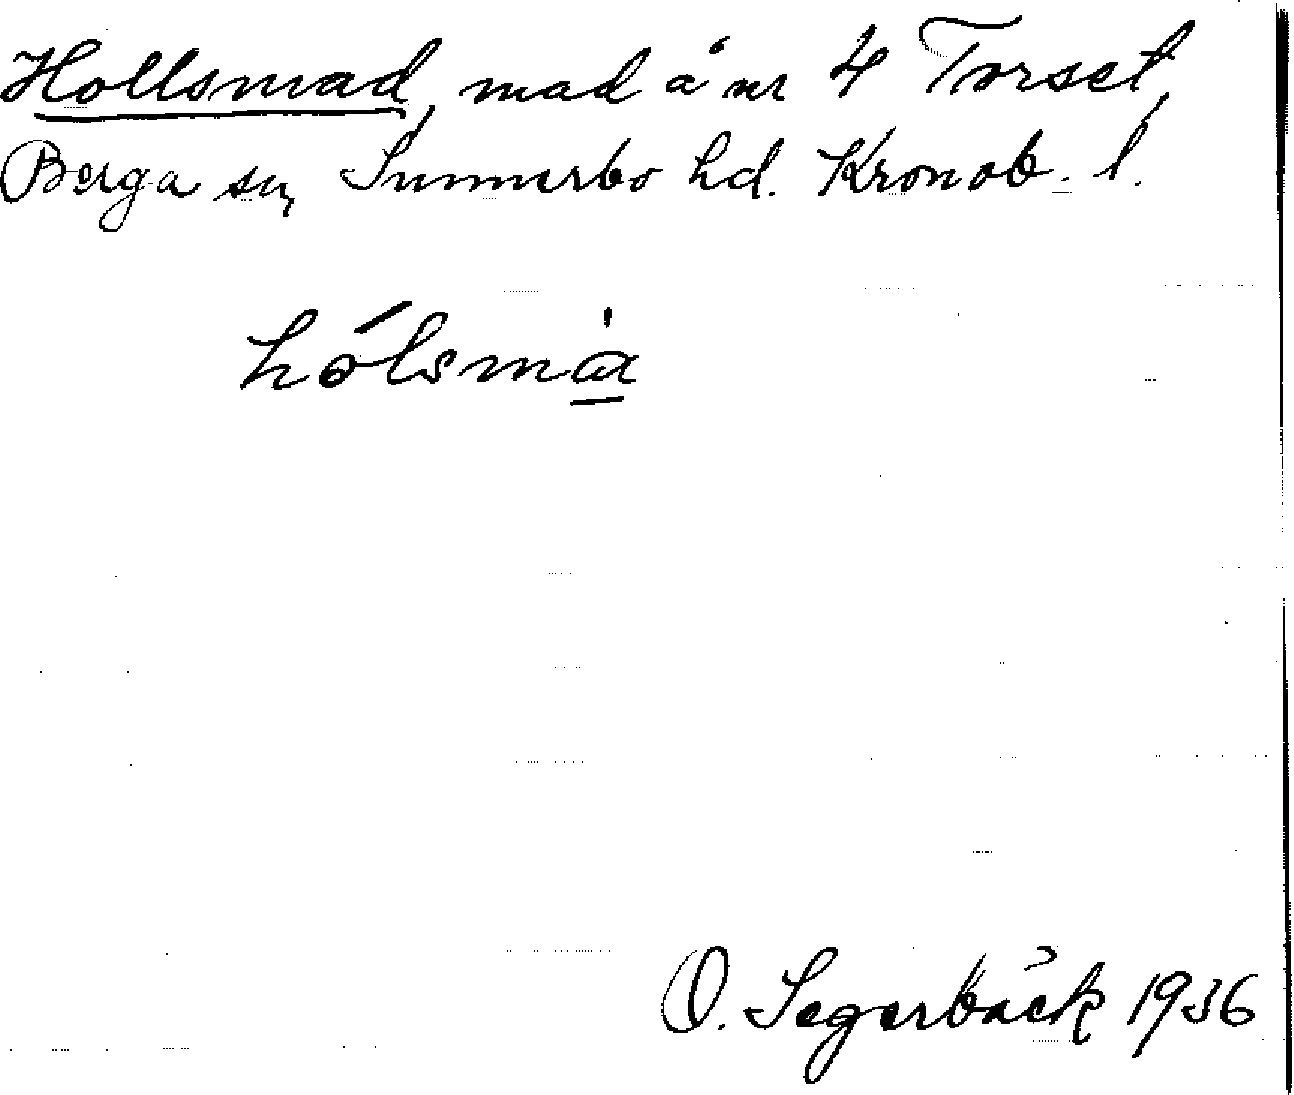 Hollsmad, mad å nr 4 Torset,
Berga sn, Sunnerbo hd. Kronob. l.
hólsmà
O. Segerbäck 1936